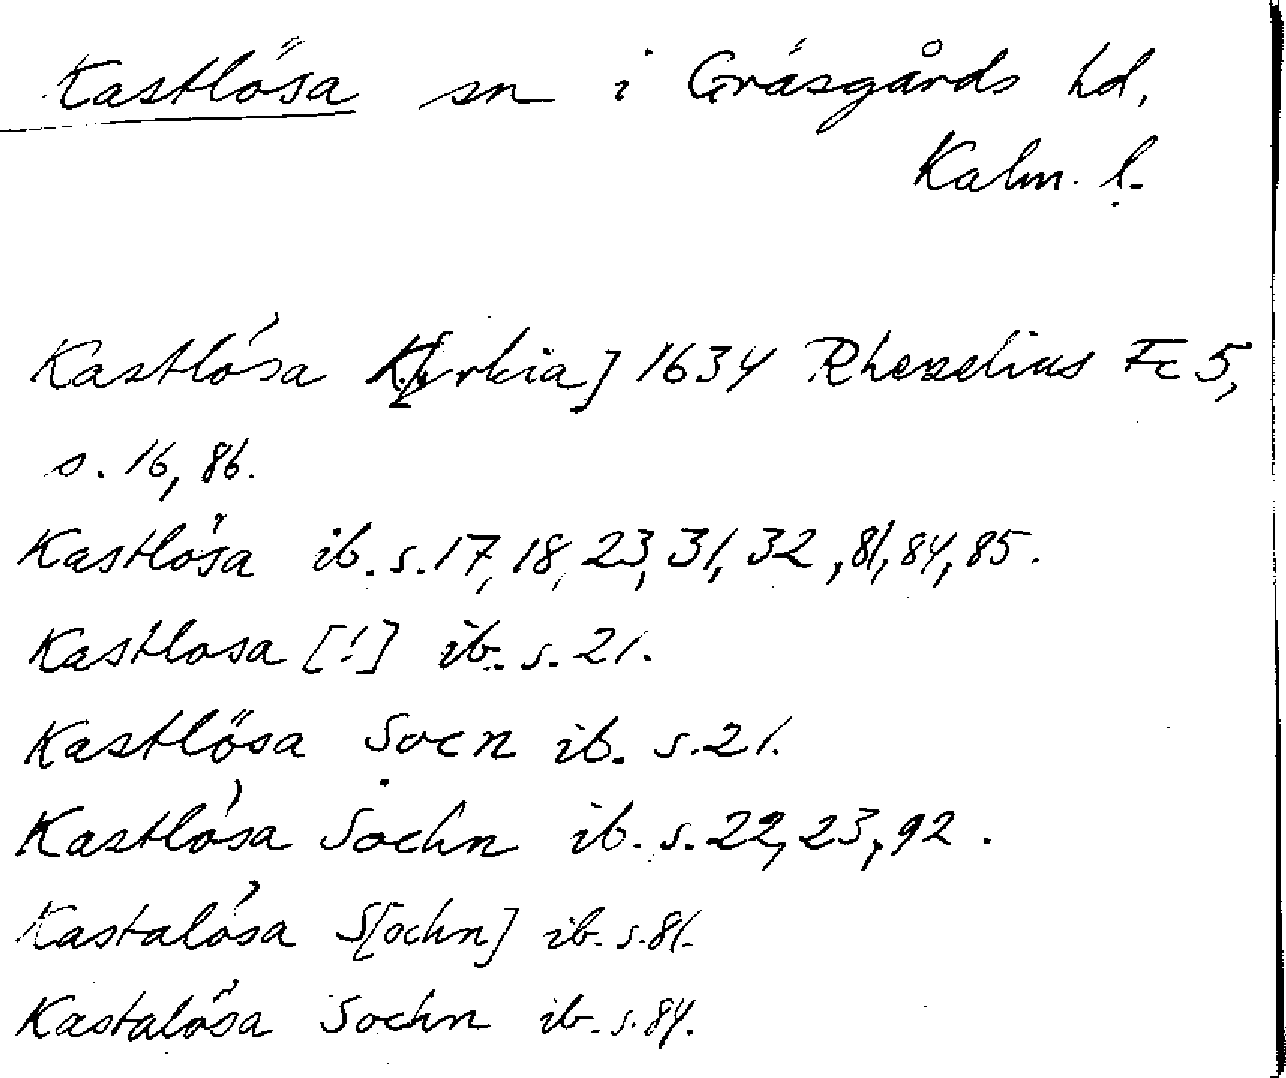 Kastlösa sn i Gräsgårds hd,
Kalm. l.
Kastlösa K[yrkia] 1634 Rhezelius Fc 5,
s. 16, 86.
Kastlösa ib. s. 17, 18, 23, 31, 32, 81, 84, 85.
Kastlosa [!] ib. s. 21.
Kastlösa Socn ib. s. 21.
Kastlösa Sochn ib. s. 22, 23, 92.
Kastalösa S[ochn] ib. s. 81.
Kastalösa Sochn ib. s. 84.